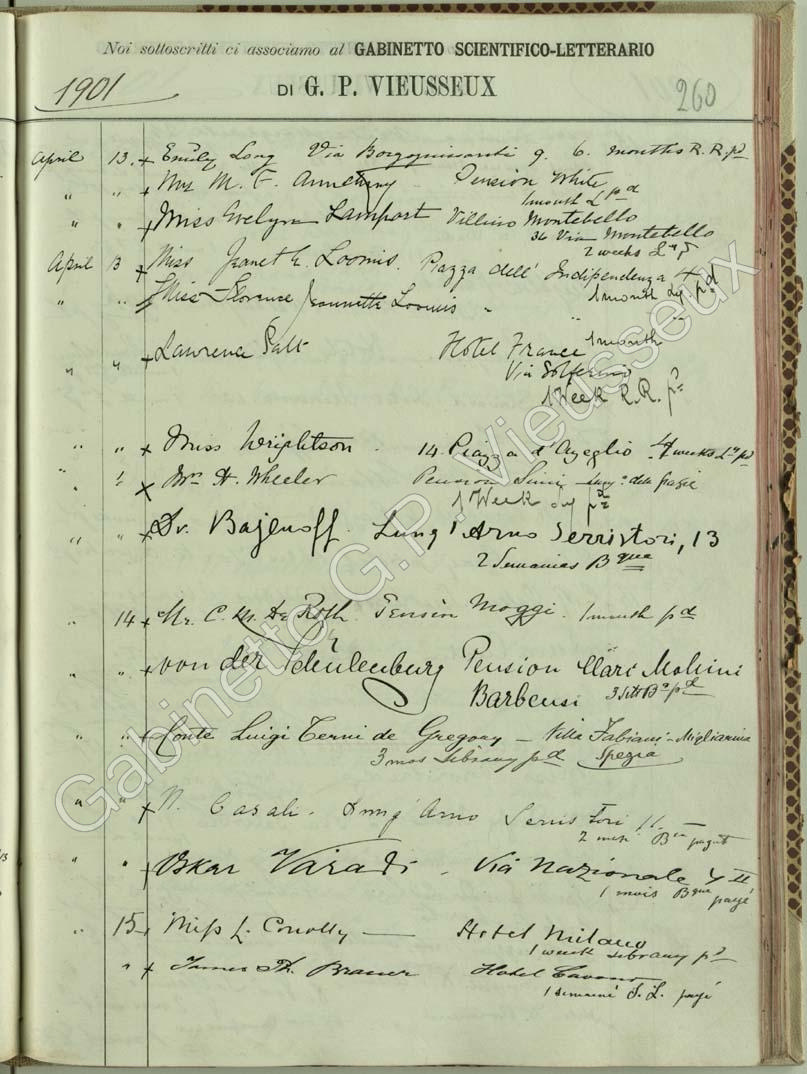 Noi sottoscritti ci associamo al GABINETTO SCIENTIFICO-LETTERARIO
1901
DI G. P. VIEUSSEUX
260
April 13. Emily Long Via Borgognissanti 9. 6. months R. R. pd
" " M. F. Pension White
1 month L pd
" " Miss Evelyn Lamport Villino Montebello
36 Via Montebello
2 weeks
April 13 Miss Jeanet E. Loomis. Piazza dell' Indipendenza 4
1 month Ly. pd
" " Miss Florence Jeannette Loomis " "
" " Lawrence Salt Hotel France 1 month
Via Solferino
1 Week R.R. pd
" " Miss Wriphtson. 14. Piazza d'Azeglio. 4 weeks pd
" " A. Wheeler Pension delle Grazie
1 Week Ly pd
" " Dr. Bajenoff. Lung'Arno Serristori, 13
2 Semanias Bque
" 14 Mr. C. M. De Roth. Pension Moggi. 1 month pd
" " von der Schulenburg Pension Clari Molini
Barbensi
" " Conte Luigi Terni de Gregory — Villa Fabiani - Migliarina
3 mos Library pd Spezia
" " N. Casali. Lung' Arno Serristori 11.
2
" " Oskar Váradi. Via Nazionale
1 mois Bque payé
" 15 Miss L. Conolly — Hotel Milano
1 week Library pd
" James Th. Brauer Hotel Cavour
1 semaine S. L. payé
Gabinetto G.P. Vieusseux